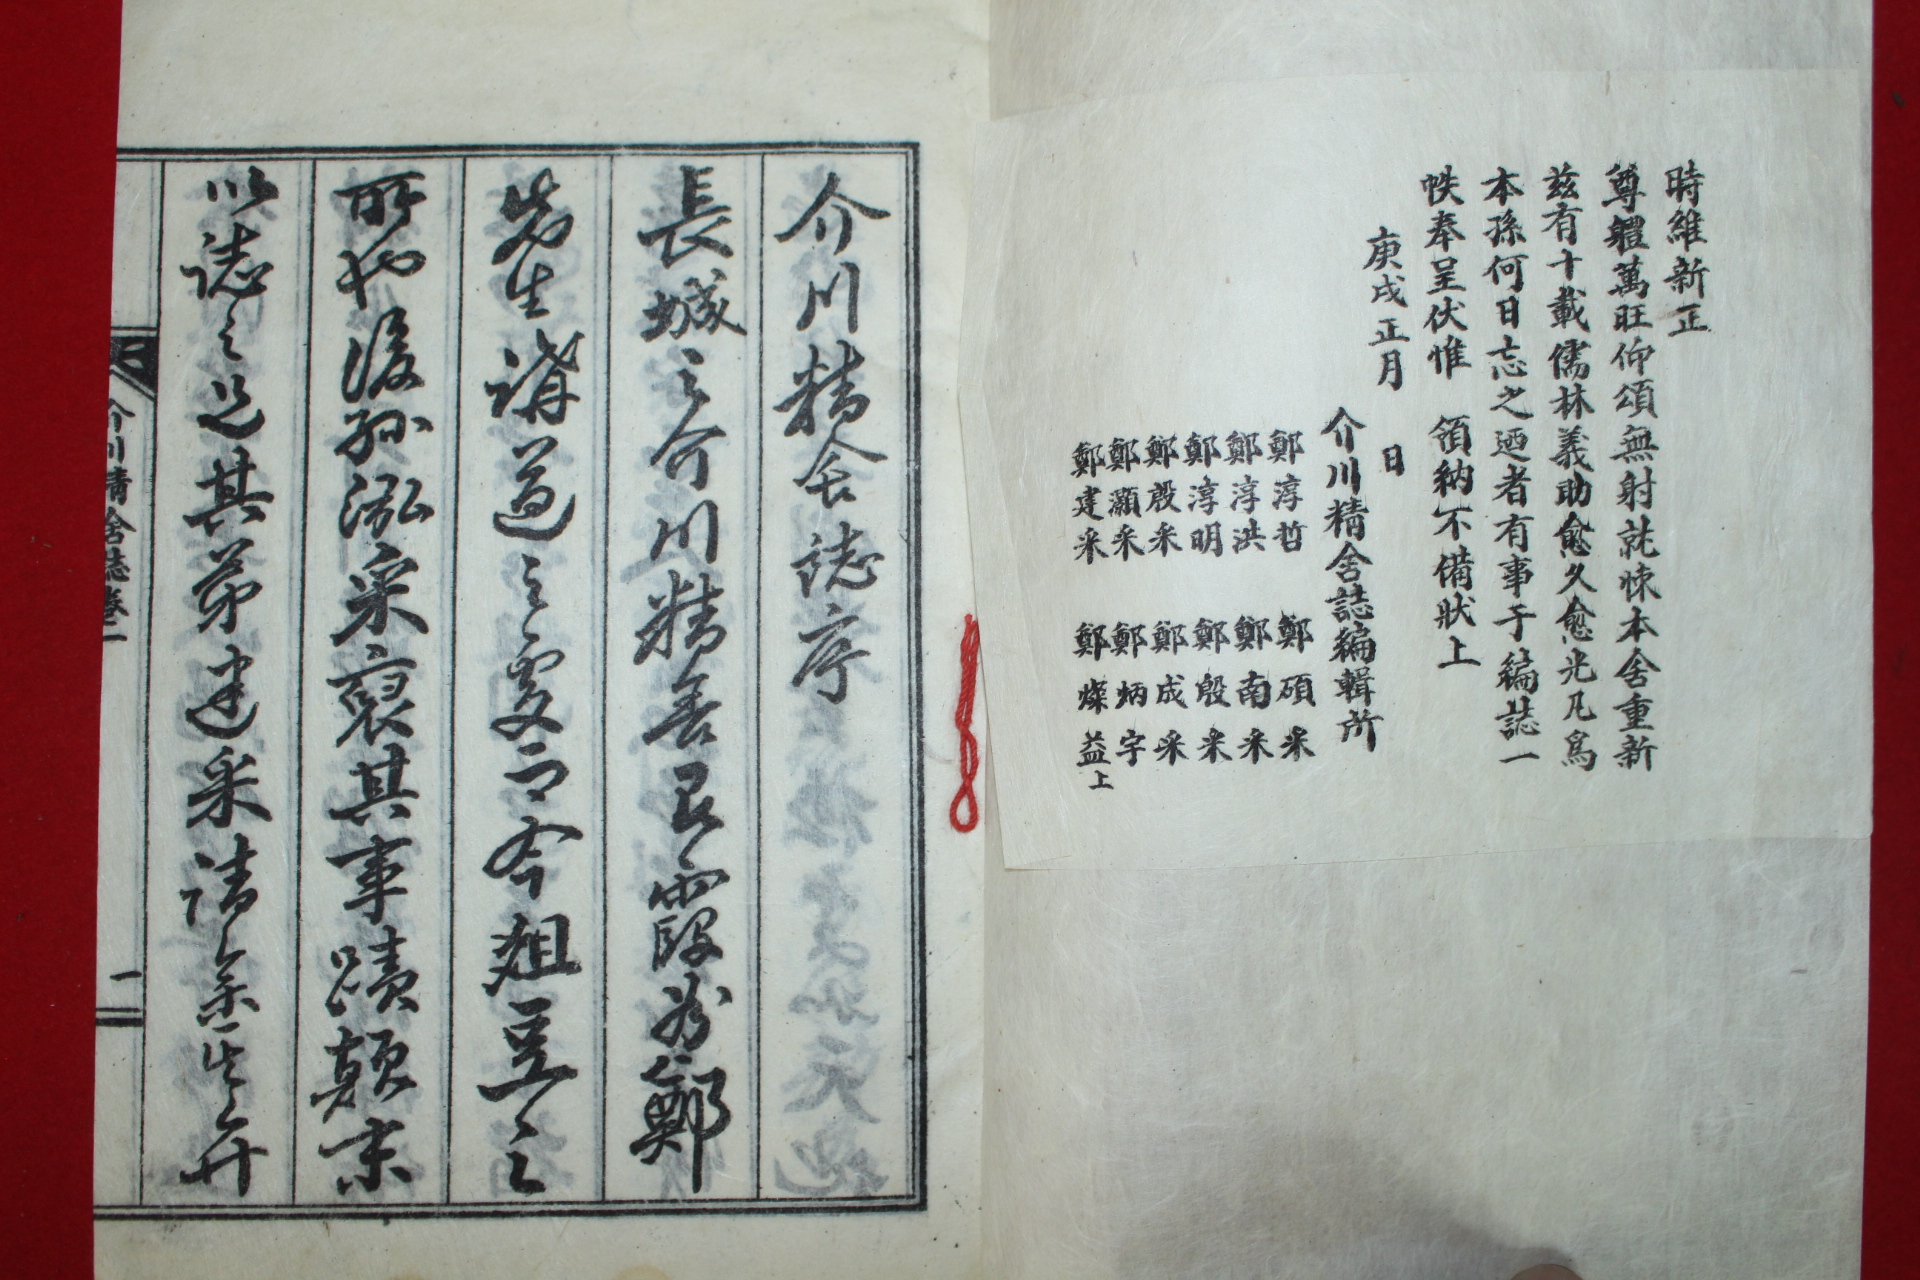 時維新正
尊體萬旺仰頌無射就悚本舍重新
茲有十載儒林義助愈久愈光凡爲
本孫何日忘之迺者有事于編誌一
帙奉呈伏惟 領納不備狀上
庚戌正月 日
介川精舍誌編輯所
鄭淳哲 鄭碩采
鄭淳洪 鄭南采
鄭淳明 鄭殷采
鄭殷采 鄭成采
鄭灝采 鄭炳宇
鄭建采 鄭燦益 上
介川精舍誌序
長城之介川精舍晩霞翁鄭
先生講道之處而今俎豆之
所也後孫泓采裒其事蹟顛末
以誌之送其弟建采請余一言弁
介川精舍誌卷一
一